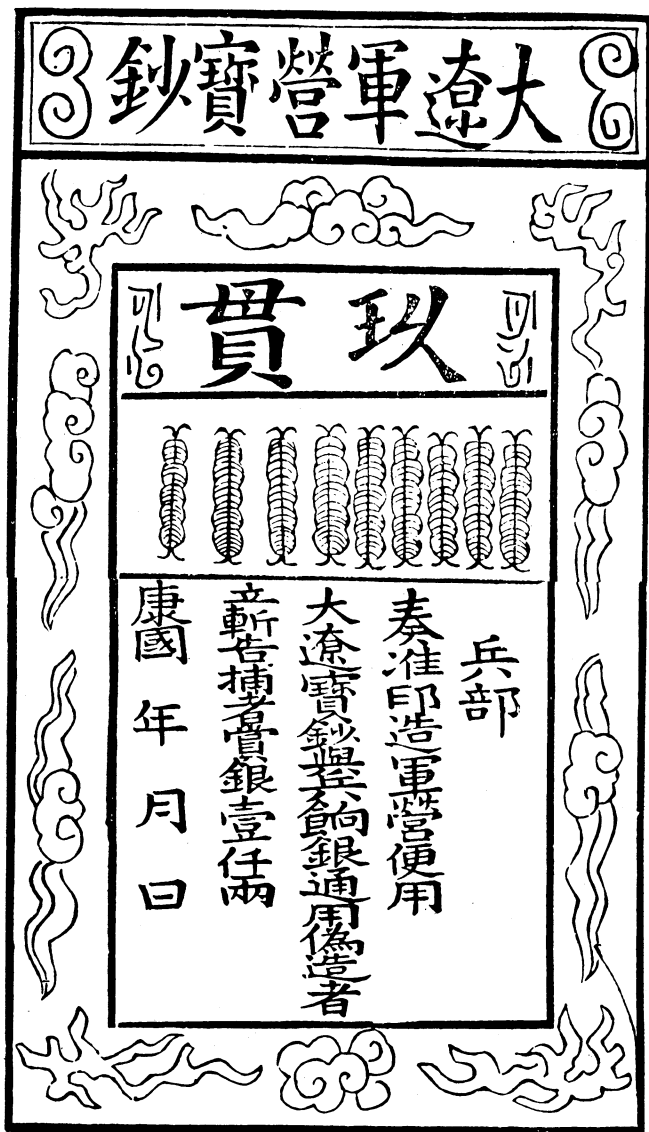 大遼軍營寶鈔
玖貫
兵部
奏准印造軍營便用
大遼寶鈔與兵餉銀通用偽造者
立斬告捕者賞銀壹仟兩
康國 年 月 日